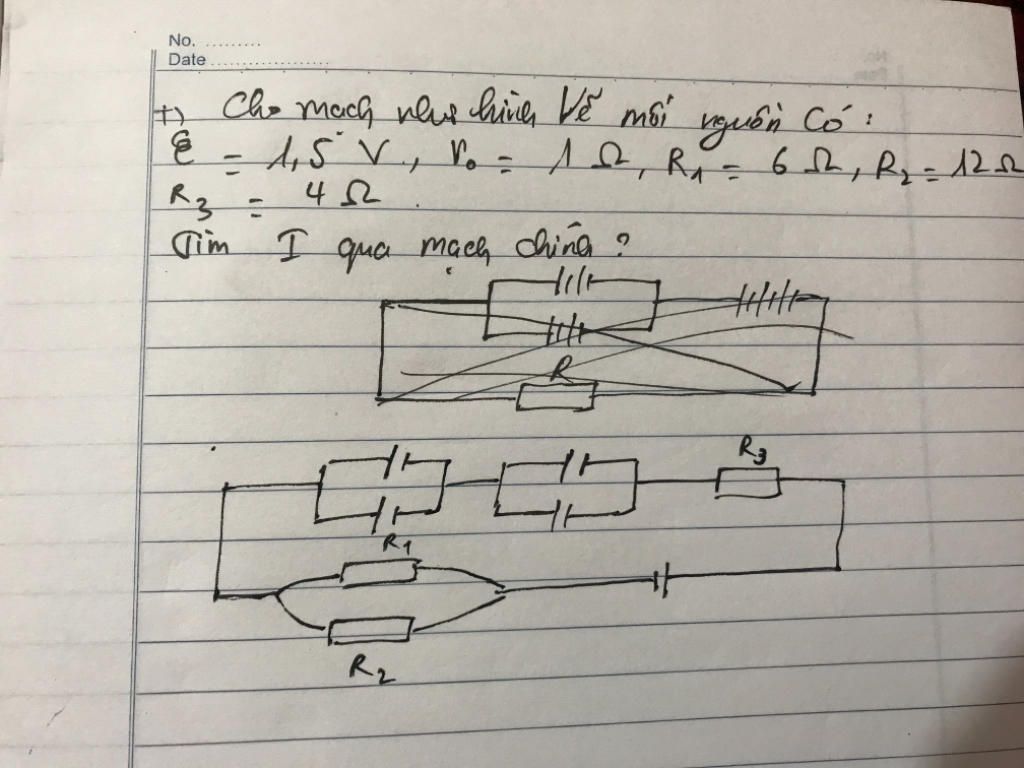 No. .........
Date ....................
+) Cho mạch như hình vẽ mỗi nguồn có:
ℰ = 1,5 V, r₀ = 1 Ω, R₁ = 6 Ω, R₂ = 12 Ω
R₃ = 4 Ω.
Tìm I qua mạch chính?
R
R₃
R₁
R₂